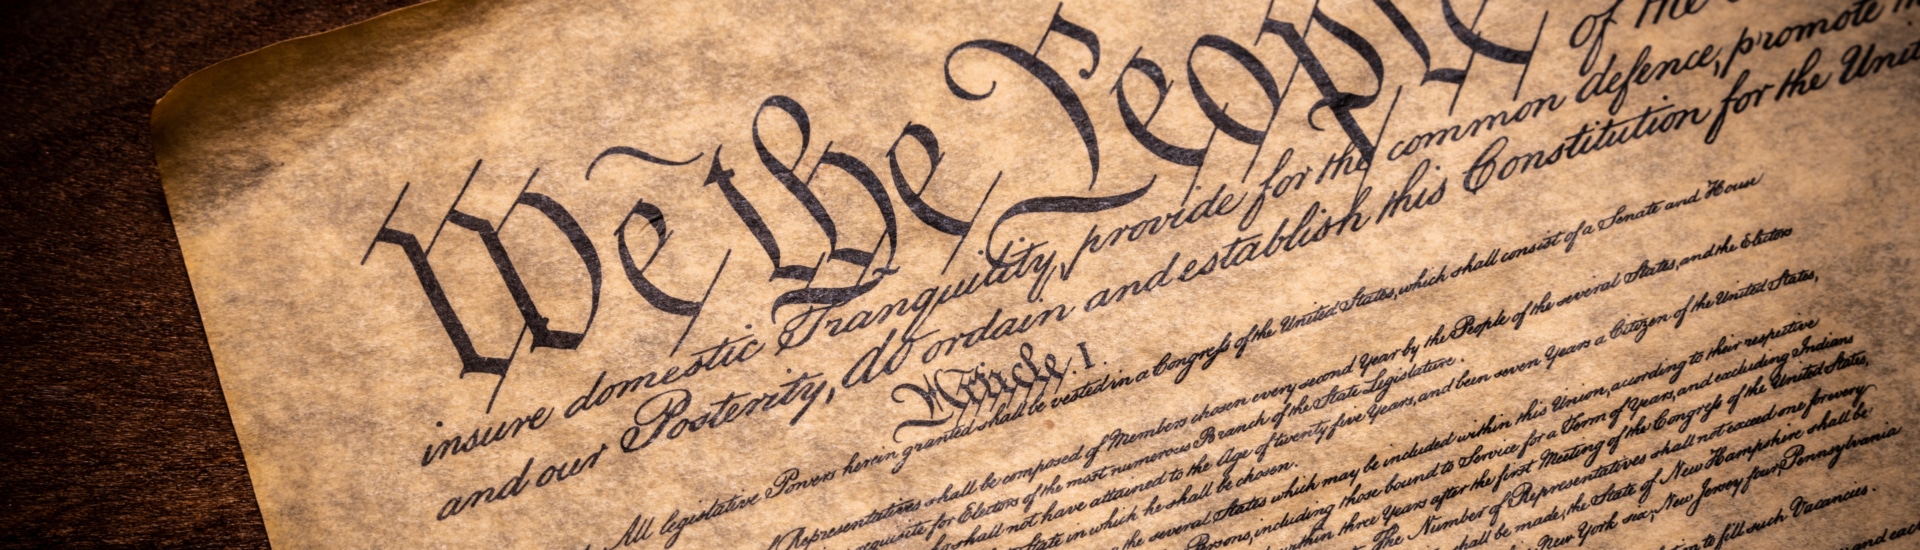 We the People of the
insure domestic Tranquility, provide for the common defence, promote
and our Posterity, do ordain and establish this Constitution for the Unit
Article. I.
All legislative Powers herein granted shall be vested in a Congress of the United States, which shall consist of a Senate and House
Representatives shall be composed of Members chosen every second Year by the People of the several States, and the Electors
requisite for Electors of the most numerous Branch of the State Legislature.
shall not have attained to the Age of twenty five Years, and been seven Years a Citizen of the United States,
State in which he shall be chosen.
the several States which may be included within this Union, according to their respective
Persons, including those bound to Service for a Term of Years, and excluding Indians
within three Years after the first Meeting of the Congress of the United States,
The Number of Representatives shall not exceed one for every
shall be made, the State of New Hampshire shall be
New York six, New Jersey four, Pennsylvania
to fill such Vacancies.
and